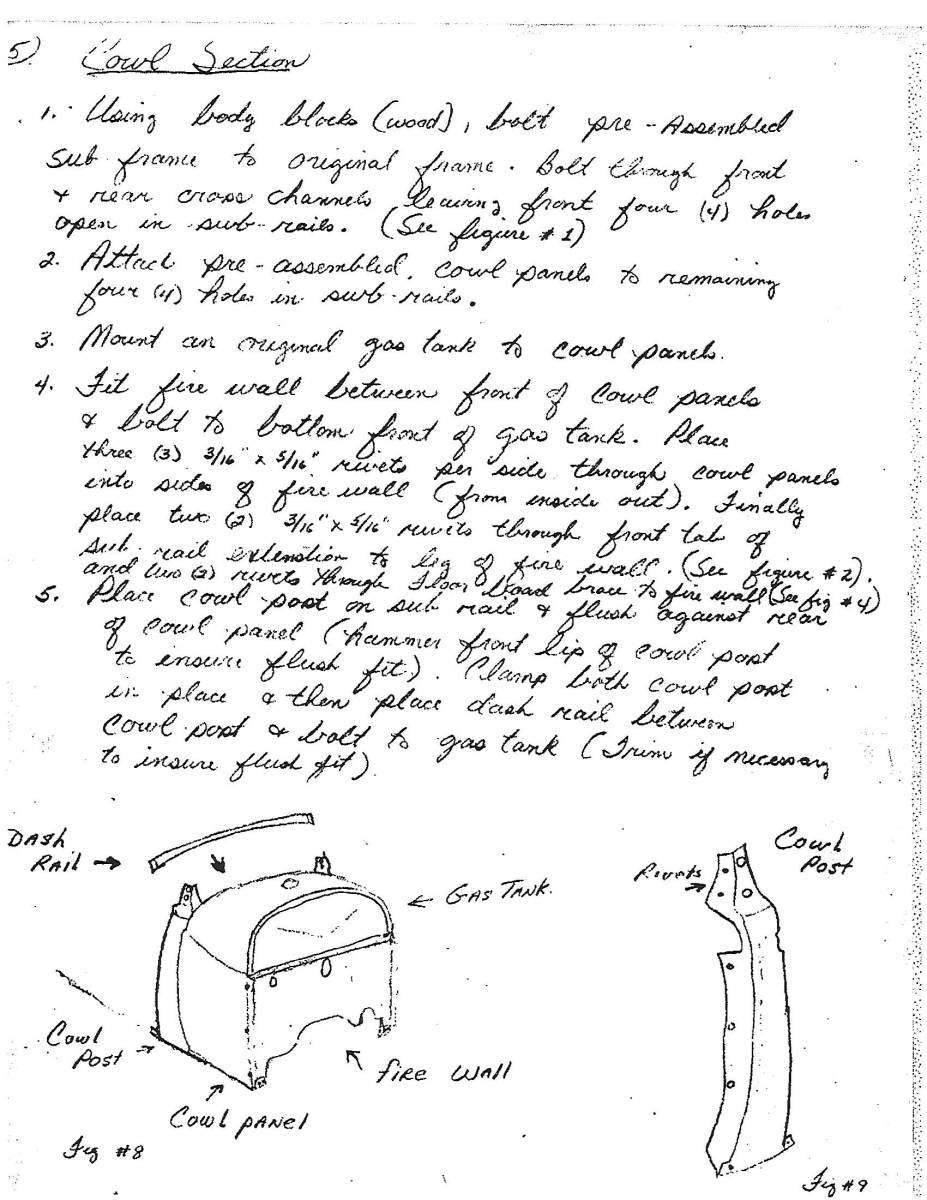 5) Cowl Section
1. Using body blocks (wood), bolt pre-Assembled
sub frame to original frame. Bolt through front
& rear cross channels leaving front four (4) holes
open in sub-rails. (See figure #1)
2. Attach pre-assembled cowl panels to remaining
four (4) holes in sub-rails.
3. Mount an original gas tank to cowl panels.
4. Fit fire wall between front of Cowl panels
& bolt to bottom front of gas tank. Place
three (3) 3/16" x 5/16" rivets per side through cowl panels
into sides of fire wall (from inside out). Finally
place two (2) 3/16" x 5/16" rivets through front tab of
sub rail extenstion to leg of fire wall. (See figure #2).
and two (2) rivets through Floor board brace to fire wall (See fig #4)
5. Place cowl post on sub rail & flush against rear
of cowl panel (hammer front lip of cowl post
to insure flush fit). Clamp both cowl post
in place & then place dash rail between
cowl post & bolt to gas tank (Trim if necessary
to insure flush fit)
DASH
RAIL
GAS TANK.
Cowl
Post
fire wall
Cowl panel
Fig #8
Rivets
Cowl
Post
Fig #9